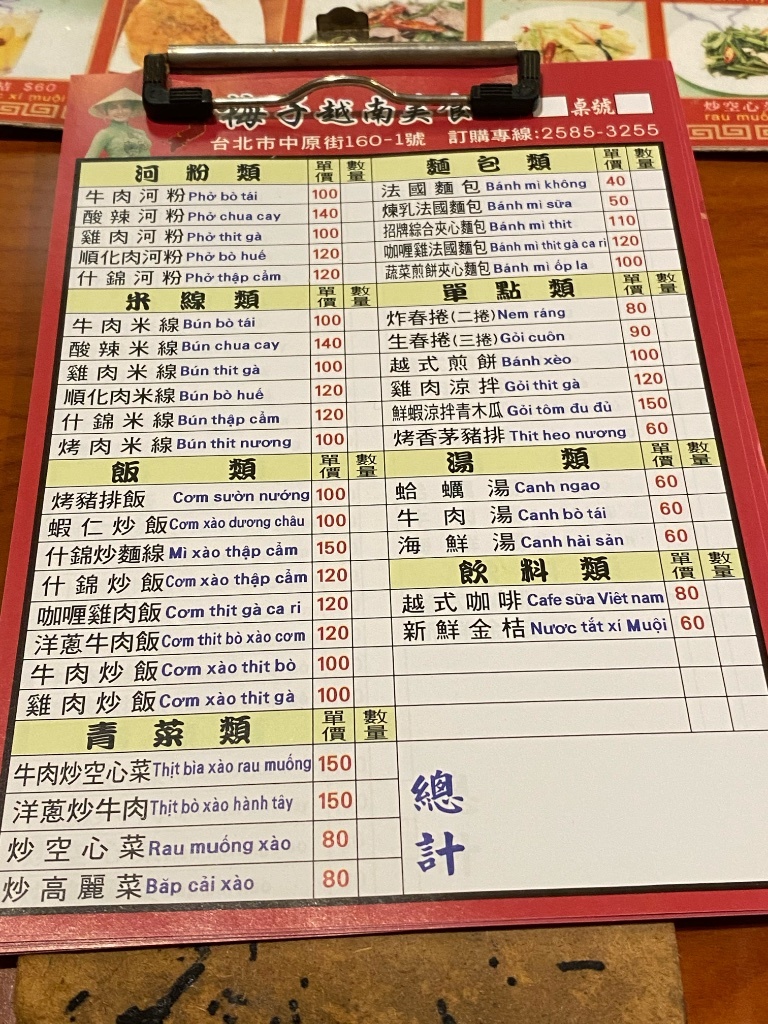 $60
xí muội
炒空心菜
rau muố
梅子越南美食
桌號
台北市中原街160-1號 訂購專線:2585-3255
河粉類 單價 數量
牛肉河粉 Phở bò tái 100
酸辣河粉 Phở chua cay 140
雞肉河粉 Phở thit gà 100
順化肉河粉 Phở bò huế 120
什錦河粉 Phở thập cẩm 120
米線類 單價 數量
牛肉米線 Bún bò tái 100
酸辣米線 Bún chua cay 140
雞肉米線 Bún thịt gà 100
順化肉米線 Bún bò huế 120
什錦米線 Bún thập cẩm 120
烤肉米線 Bún thit nương 100
飯類 單價 數量
烤豬排飯 Cơm sườn nướng 100
蝦仁炒飯 Cơm xào dương châu 100
什錦炒麵線 Mì xào thập cẩm 150
什錦炒飯 Cơm xào thập cẩm 120
咖哩雞肉飯 Cơm thịt gà ca ri 120
洋蔥牛肉飯 Cơm thit bỏ xào cơm 120
牛肉炒飯 Cơm xào thịt bò 100
雞肉炒飯 Cơm xào thịt gà 100
青菜類 單價 數量
牛肉炒空心菜 Thịt bìa xào rau muống 150
洋蔥炒牛肉 Thịt bò xào hành tây 150
炒空心菜 Rau muống xào 80
炒高麗菜 Băp cải xào 80
麵包類 單價 數量
法國麵包 Bánh mì không 40
煉乳法國麵包 Bánh mì sữa 50
招牌綜合夾心麵包 Bánh mì thịt 110
咖喱雞法國麵包 Bánh mì thịt gà ca ri 120
蔬菜煎餅夾心麵包 Bánh mì ốp la 100
單點類 單價 數量
炸春捲(二捲) Nem ráng 80
生春捲(三捲) Gỏi cuôn 90
越式煎餅 Bánh xèo 100
雞肉涼拌 Gỏi thịt gà 120
鮮蝦涼拌青木瓜 Gỏi tôm đu đủ 150
烤香茅豬排 Thịt heo nương 60
湯類 單價 數量
蛤蠣湯 Canh ngao 60
牛肉湯 Canh bò tái 60
海鮮湯 Canh hài sản 60
飲料類 單價 數量
越式咖啡 Cafe sữa Việt nam 80
新鮮金桔 Nước tắt xí Muội 60
總計